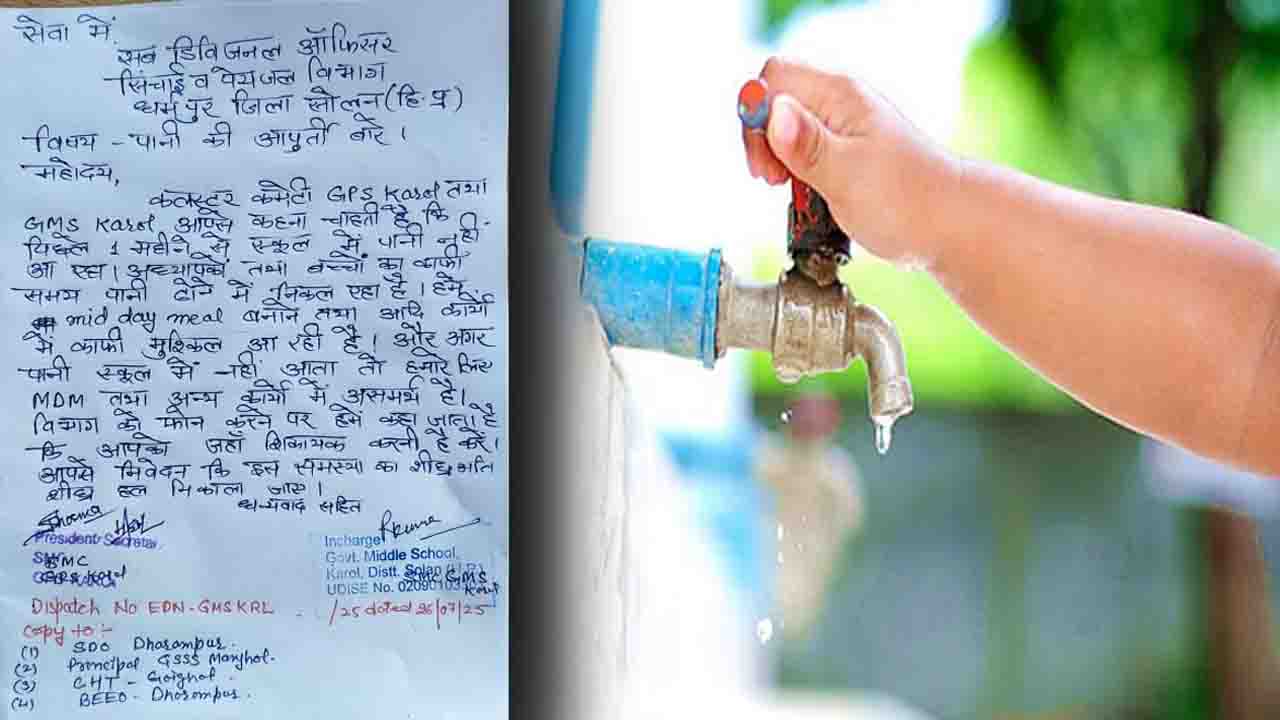 सेवा में,
सब डिविजनल ऑफिसर
सिंचाई व पेयजल विभाग
धर्मपुर जिला सोलन (हि.प्र)
विषय - पानी की आपुर्ती बारे ।
महोदय,
कलस्टर कमेटी GPS Karol तथा
GMS Karol आपसे कहना चाहती है कि
पिछले 1 महीने से स्कूल में पानी नही
आ रहा । अध्यापकों तथा बच्चों का काफी
समय पानी ढोने में निकल रहा है । हमे
mid day meal बनाने तथा आदि कार्यो
में काफी मुश्किल आ रही है । और अगर
पानी स्कूल में नहीं आता तो हमारे लिए
MDM तथा अन्य कार्यो में असमर्थ है ।
विभाग को फोन करने पर हमें कहा जाता है
कि आपको जहाँ शिकायक करनी है करें ।
आपसे निवेदन कि इस समस्या का शीघ्र अति
शीघ्र हल निकाला जाए ।
धन्यवाद सहित
President Secretar
SMC
Incharge
Govt. Middle School,
Karol, Distt. Solan
SMC GMS
UDISE No. 0209010
Dispatch No EDN-GMSKRL /25 dated 26/07/25
Copy to :-
(1) SDO Dharampur.
(2) Principal GSSS Manjhol.
(3) CHT -
(4) BEEO - Dharampur.